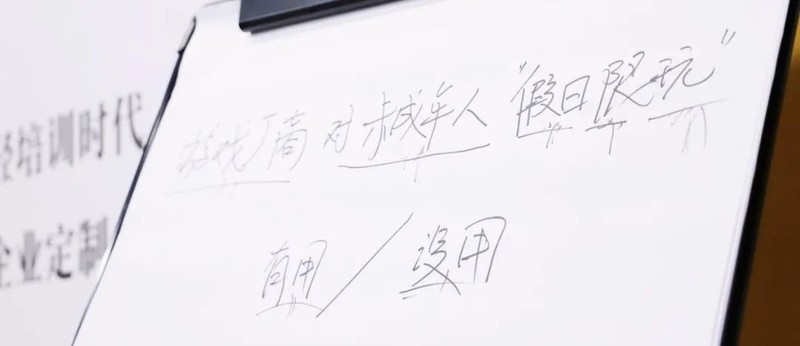 游戏厂商 对未成年人 “假日限玩”
有用／没用
培训时代
企业定制